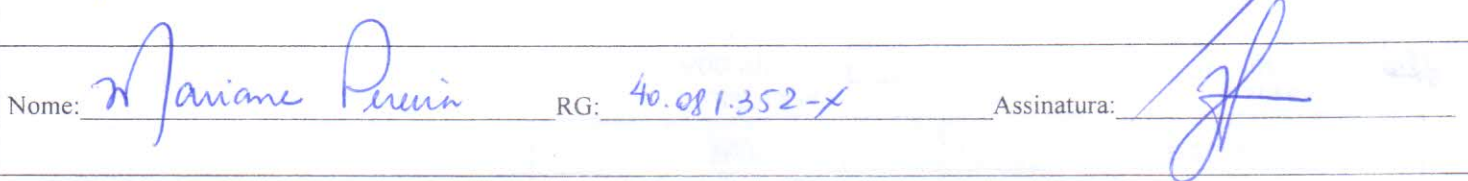 Nome: Mariane Pereira RG: 40.081.352-X Assinatura: